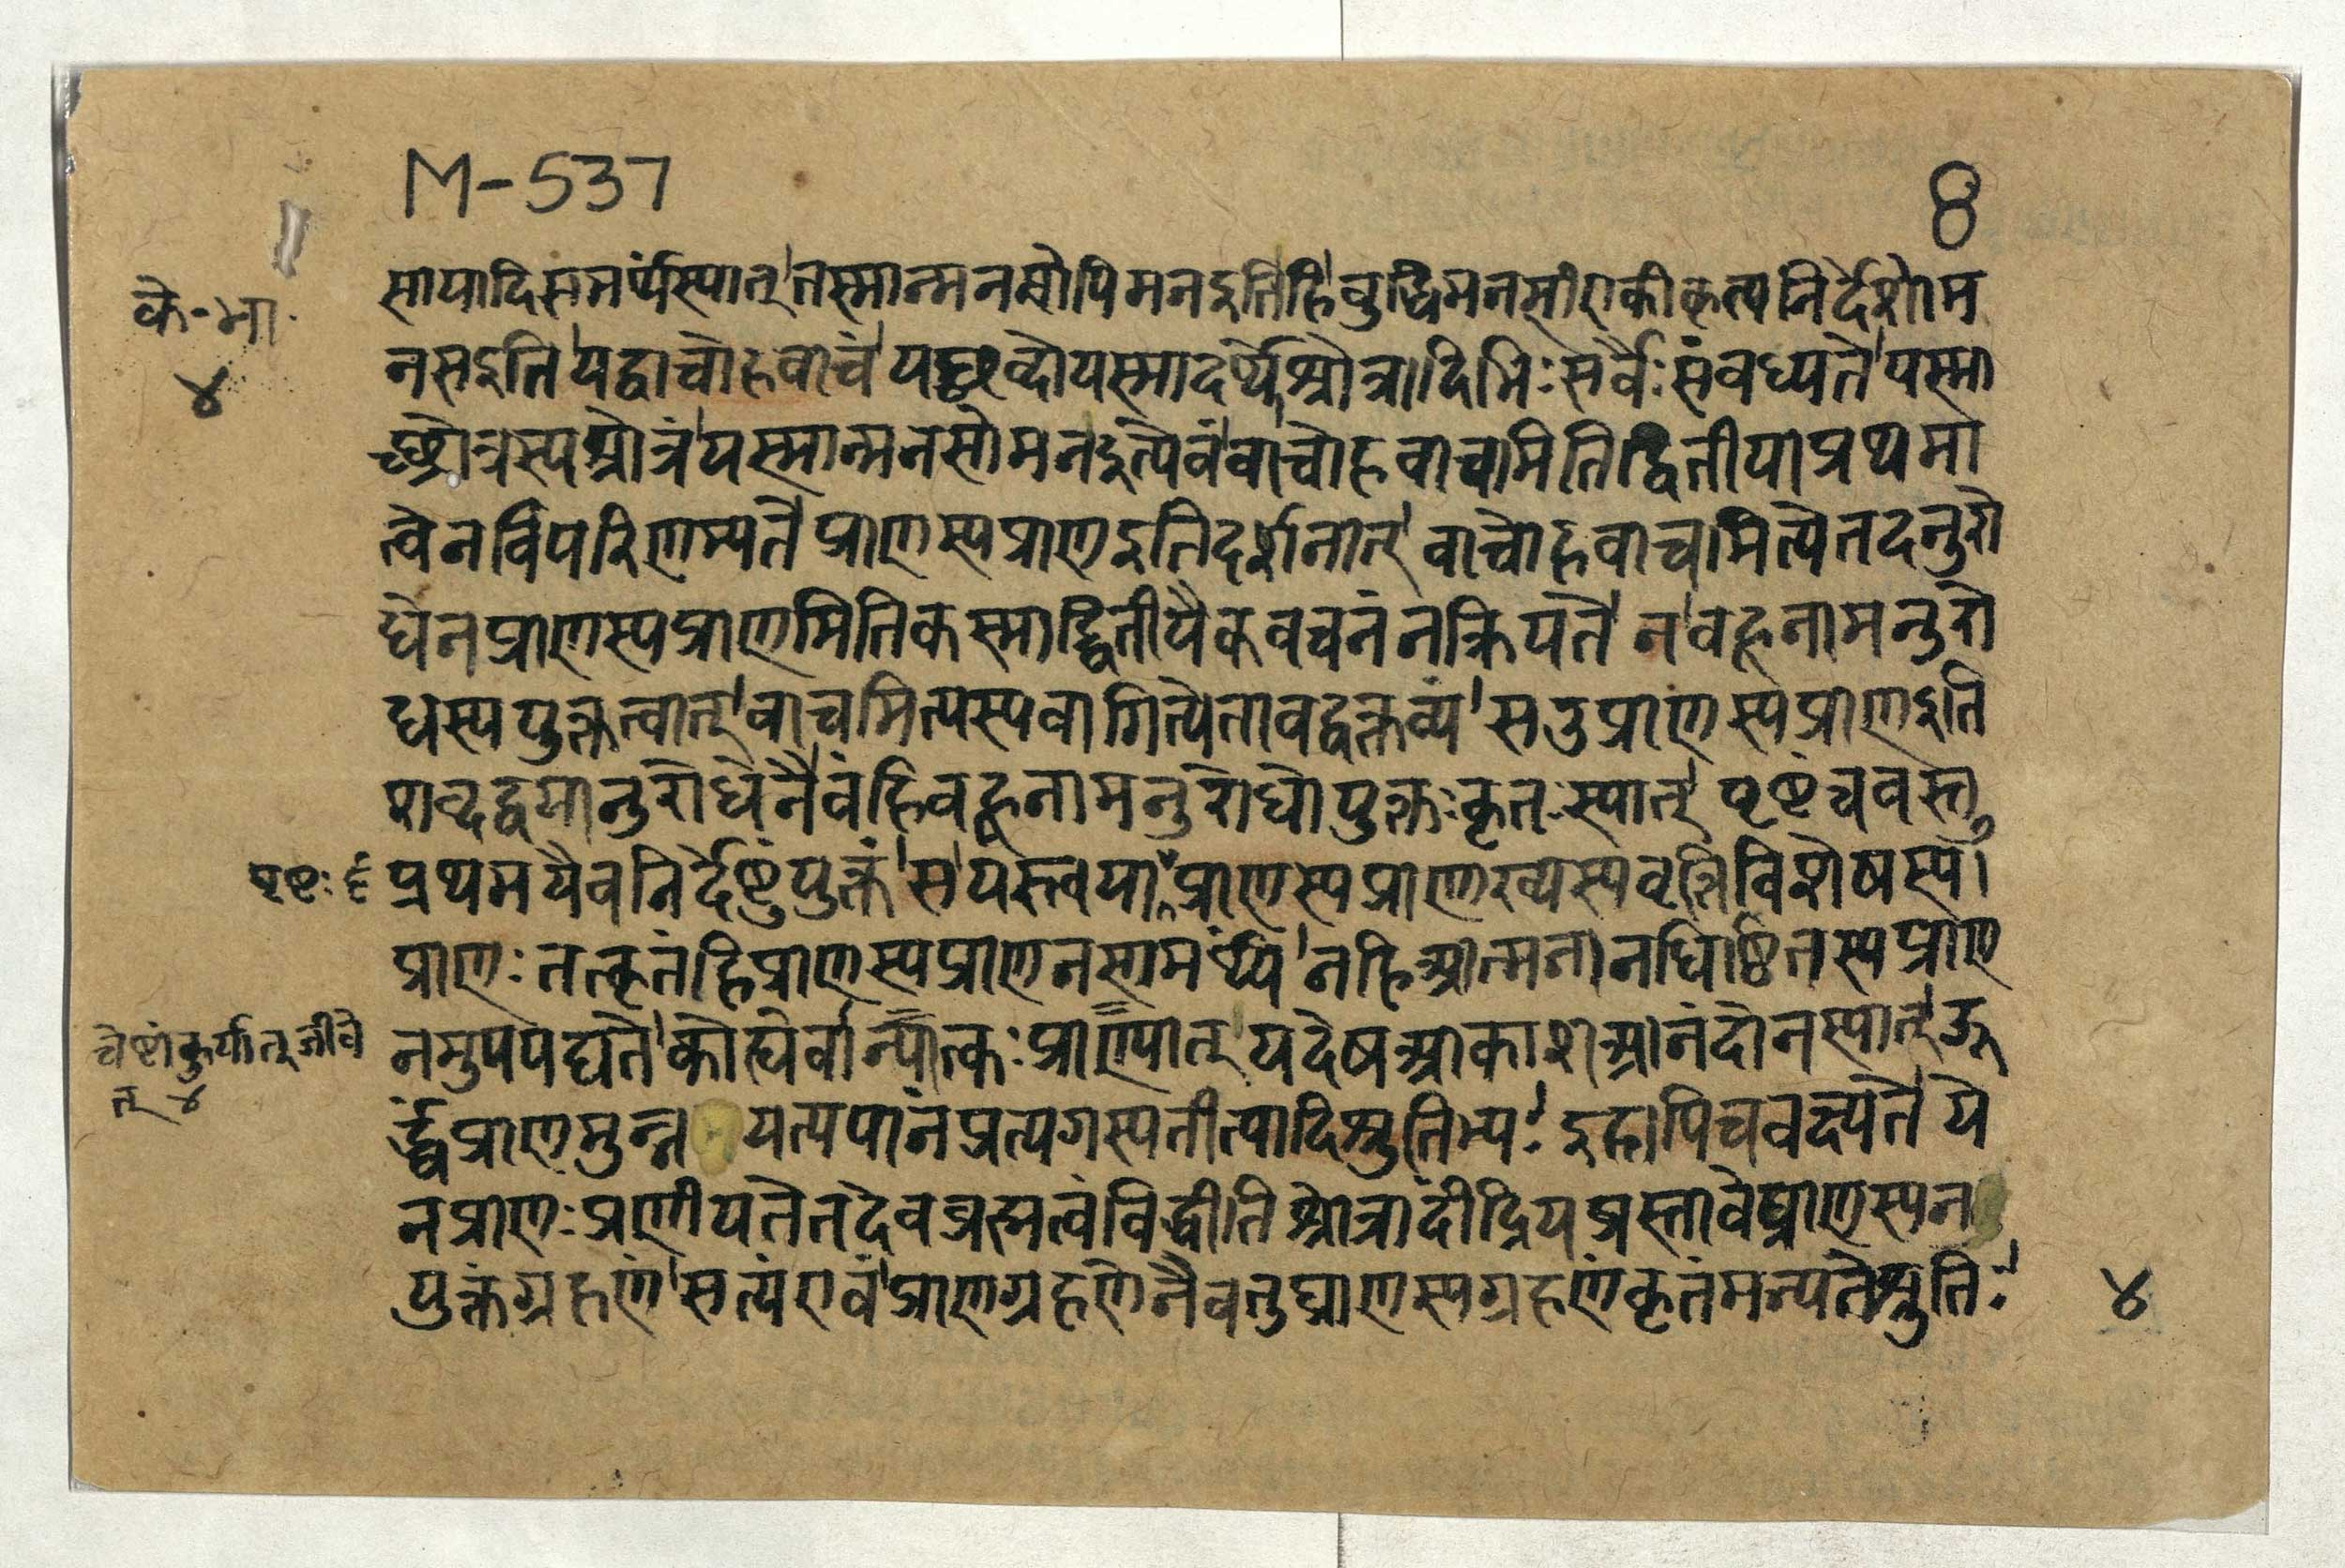 M-537
8
के-भा-
४
सायादिसमर्थ्यस्यात्'तस्मान्मनसोपिमनइतिहि'बुद्धिमनसोरेकीकृत्यनिर्देशोम
नसइति'यद्वाचोहवाचं'यछब्दोयस्मादर्थेश्रोत्रादिभिःसर्वैःसंवध्यते'यस्मा
च्छ्रोत्रस्यश्रोत्रं'यस्मान्मनसोमनइत्येवं'वाचोहवाचमितिद्वितीयाप्रथमा
त्वेनविपरिणम्यते'प्राणस्यप्राणइतिदर्शनात्'वाचोहवाचमित्येतदनुरो
धेनप्राणस्यप्राणमितिकस्माद्द्वितीयैकवचनंनक्रियते'न'वहूनामनुरो
धस्ययुक्तत्वात्'वाचमित्यस्यवागित्येतावद्वक्तव्यं'सउप्राणस्यप्राणइति
शब्दद्वयानुरोधेनैवंहिवहूनामनुरोधोयुक्तःकृतःस्यात्'पृष्टंचवस्तु
प्रथमयैवनिर्देष्टुंयुक्तं'सयस्त्वयाप्राणस्यप्राणख्यस्यवृत्तिविशेषस्य।
पृष्टः ८
प्राणःतत्कृतंहिप्राणस्यप्राणनसामर्थ्यं'नहिआत्मनानधिष्ठितस्यप्राण
नमुपपद्यते'कोह्येवान्यात्कःप्राण्यात्'यदेषआकाशआनंदोनस्यात्'ऊ
चेष्टांकुर्यात्जीवे
त् ४
र्द्ध्वंप्राणमुन्नयत्यपानंप्रत्यगस्यतीत्यादिश्रुतिभ्यः'इहापिचवक्ष्यते'ये
नप्राणःप्रणीयतेतदेवब्रह्मत्वंविद्धीतिश्रोत्रादींद्रियप्रस्तावेघ्राणस्यन
युक्तंग्रहणं'सत्यंएवं'प्राणग्रहणेनैवतुघ्राणस्यग्रहणंकृतंमन्यतेश्रुतिः'
४